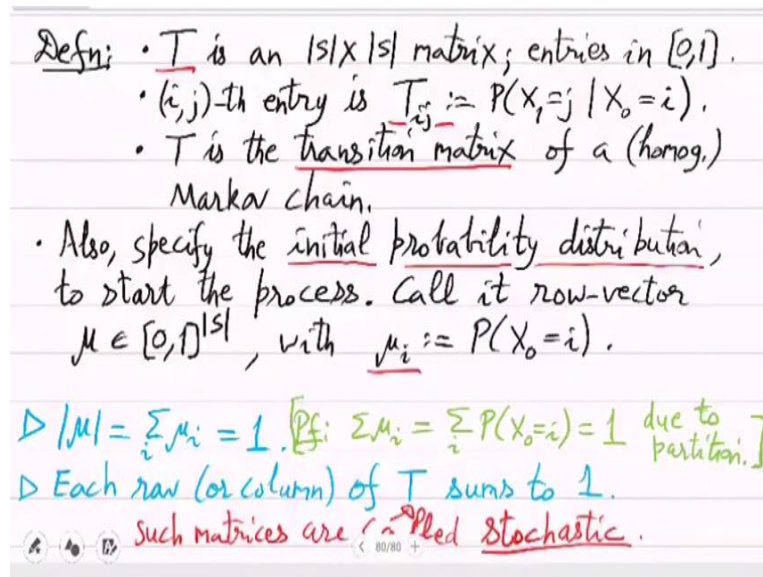 Defn: • T is an |S|x|S| matrix; entries in [0,1].
• (i,j)-th entry is T_ij := P(X_1=j | X_0=i).
• T is the transition matrix of a (homog.)
Markov chain.
• Also, specify the initial probability distribution,
to start the process. Call it row-vector
μ ∈ [0,1]^|S|, with μ_i := P(X_0=i).
▷ |μ| = Σ_i μ_i = 1. [Pf: Σμ_i = Σ_i P(X_0=i) = 1 due to
partition.]
▷ Each row (or column) of T sums to 1.
Such matrices are called stochastic.
< 80/80 +